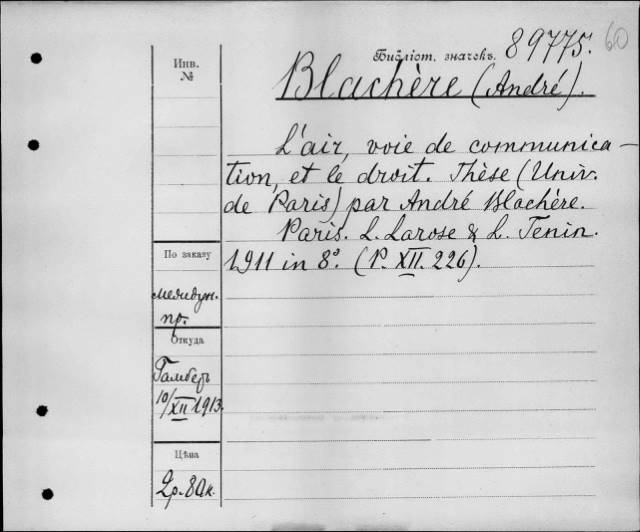 Библіот. значекъ. 89775. 60
Blachère (André).
L'air, voie de communica-
tion, et le droit. Thèse (Univ.
de Paris) par André Blachère.
Paris. L. Larose & L. Tenin.
1911 in 8º. (P. XII. 226).
Инв.
№
По заказу
междун.
пр.
Откуда
Гамберъ
10/XII 1913.
Цѣна
2р. 80к.